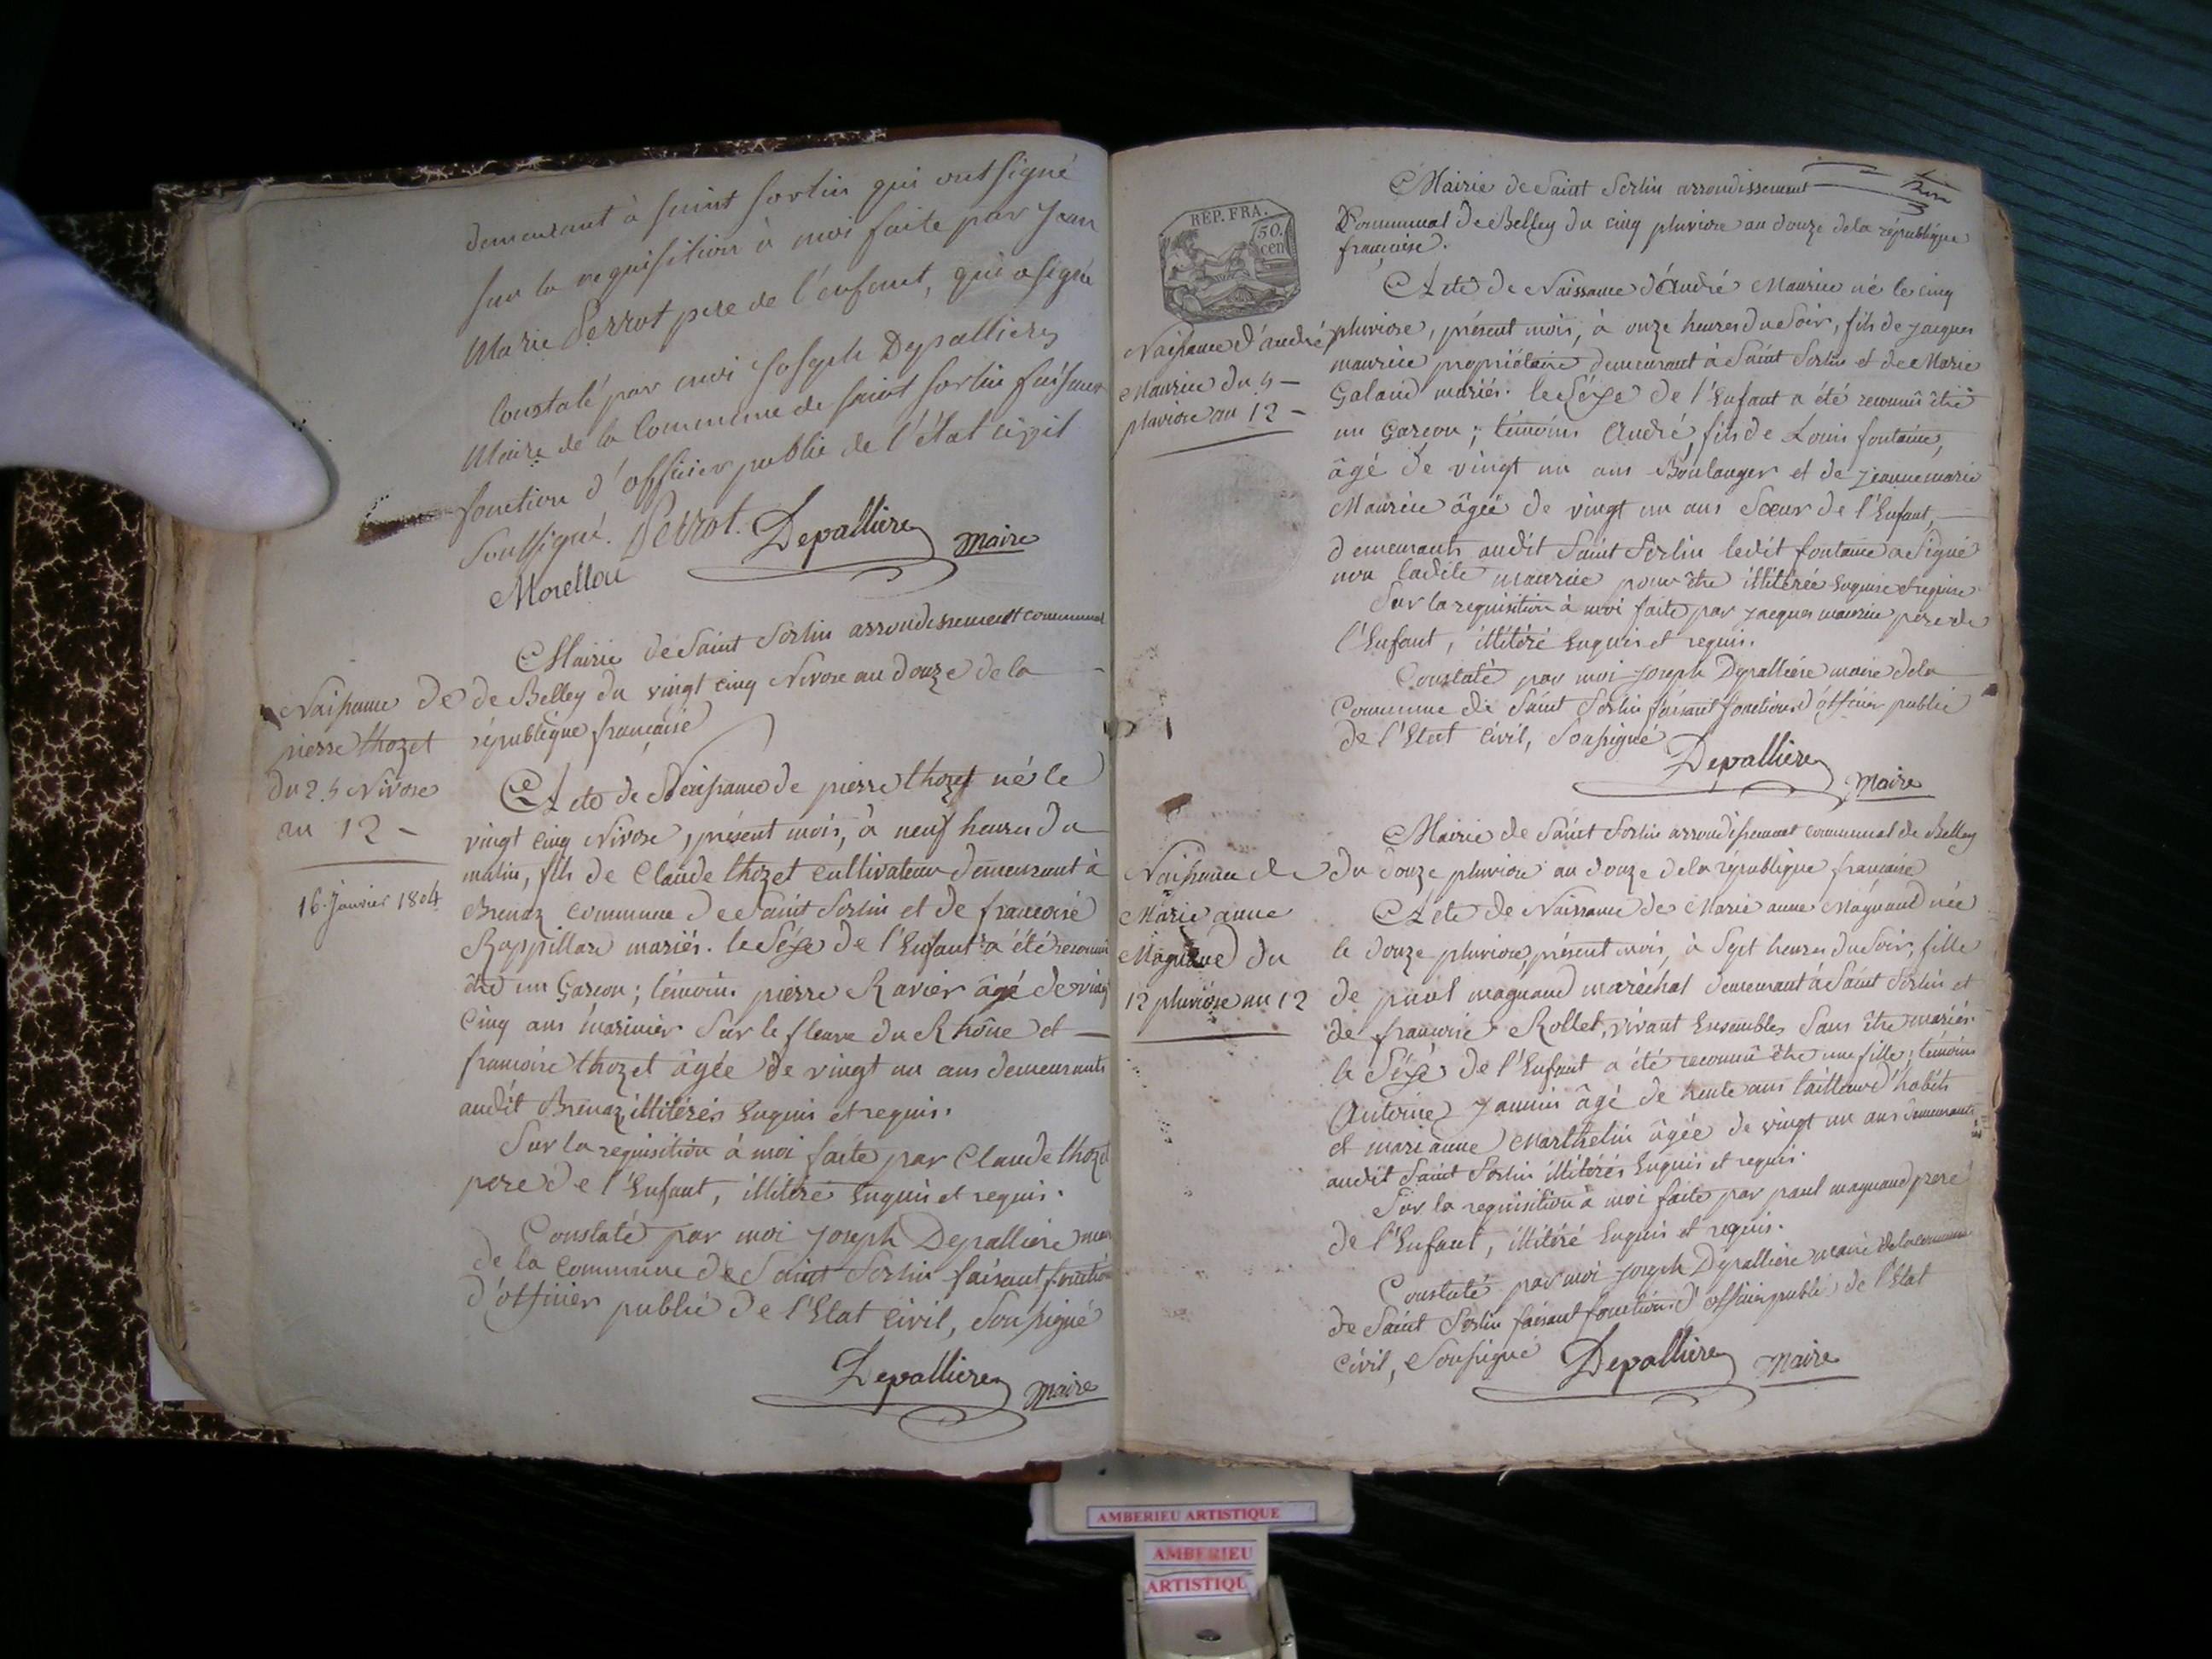 demeurant à saint sorlin qui ont signé
sur la requisition à moi faite par Jean
Marie Perrot pere de l'enfant, qui a signé
Constaté par moi Joseph Depallieres
Maire de la Commune de saint sorlin faisant
fonction d'officier public de l'état civil
soussigné. Perrot. Depalliere maire
Morellon
Mairie de Saint Sorlin arrondissement communal
de Belley du vingt cinq Nivose an douze de la
république française
Naissance de
pierre thozet
du 25 Nivose
an 12 -
16 Janvier 1804
Acte de Naissance de pierre thozet né le
vingt cinq Nivose, présent mois, à neuf heures du
matin, fils de Claude thozet cultivateur demeurant à
Brenaz commune de Saint Sorlin et de francoise
Rappillare mariés. le Séxe de l'Enfant a été reconnu
être un Garcon; témoins pierre Ravier âgé de vingt
Cinq ans marinier Sur le fleuve du Rhône et
francoise thozet âgée de vingt un ans demeurants
audit Brenaz illitérés Enquis et requis.
Sur la requisition à moi faite par Claude thozet
pere de l'Enfant, illitéré Enquis et requis.
Constaté par moi Joseph Depalliere maire
de la commune de Saint Sorlin faisant fonction
d'officier public de l'Etat Civil, Soussigné
Depalliere maire
Mairie de Saint Sorlin arrondissement
Communal de Belley du cinq pluviose an douze de la république
française.
REP. FRA.
50.
cen
Naissance d'andré
Maurice du 5
pluviose an 12 -
Acte de Naissance d'André Maurice né le cinq
pluviose, présent mois, à onze heures du Soir, fils de jacques
maurice propriétaire demeurant à Saint Sorlin et de Marie
Galand mariés. le Séxe de l'Enfant a été reconnû être
un Garcon; témoins André, fils de Louis fontaine,
âgé de vingt un ans Boulanger et de jeannemarie
Maurice âgée de vingt un ans Soeur de l'Enfant,
demeurants audit Saint Sorlin ledit fontaine a Signé
non ladite maurice pour être illitérée Enquise et requise
Sur la requisition à moi faite par jacques maurice pere de
l'Enfant, illitéré Enquis et requis.
Constaté par moi Joseph Depalliere maire de la
Commune de Saint Sorlin faisant fonction d'officier public
de l'Etat Civil, Soussigné
Depalliere maire
Mairie de Saint Sorlin arrondissement communal de Belley
du douze pluviose an douze de la république française
Naissance de
Marie anne
Magnand du
12 pluviose an 12
Acte de Naissance de Marie anne Magnand née
le douze pluviose, présent mois, à Sept heures du Soir, fille
de paul magnand maréchal demeurant à Saint Sorlin et
de francoise Rollet, vivant Ensembles Sans être mariés.
le Séxe de l'Enfant a été reconnû être une fille; témoins
Antoine Jannin âgé de trente ans tailleur d'habits
et marianne Marthelin âgée de vingt un ans demeurants
audit Saint Sorlin illitérés Enquis et requis.
Sur la requisition à moi faite par paul magnand pere
de l'Enfant, illitéré Enquis et requis.
Constaté par moi Joseph Depalliere maire de la commune
de Saint Sorlin faisant fonction d'officier public de l'Etat
Civil, Soussigné Depalliere maire
AMBERIEU ARTISTIQUE
AMBERIEU
ARTISTIQU